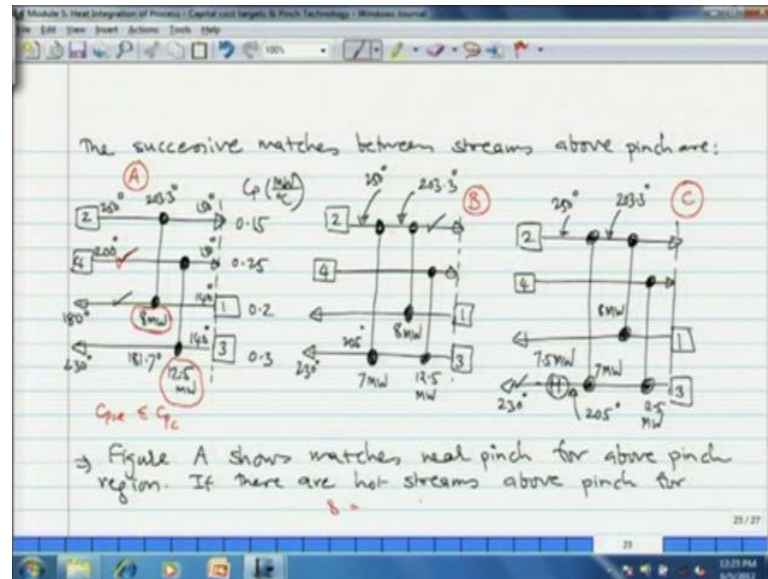 Module 5: Heat Integration of Process - Capital cost targets & Pinch Technology - Windows Journal
File Edit View Insert Actions Tools Help
100%
The successive matches between streams above pinch are:
A
Cp (MW/°C)
B
C
2 250° 203.3° 150° 0.15
4 200° 150° 0.25
180° 8MW 140° 1 0.2
230° 181.7° 12.5 MW 140° 3 0.3
CpH ≤ Cpc
250° 203.3°
2
4
8MW 1
230° 205° 7MW 12.5 MW 3
250° 203.3°
2
4
8MW 1
7.5MW 7MW
230° H 205° 12.5 MW 3
⇒ Figure A shows matches near pinch for above pinch
region. If there are hot streams above pinch for
8 =
23/27
23
12:23 PM
6/5/2012